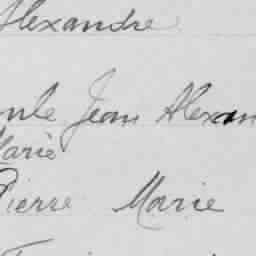 Alexandre
Jean Alexan
Marie
Pierre Marie